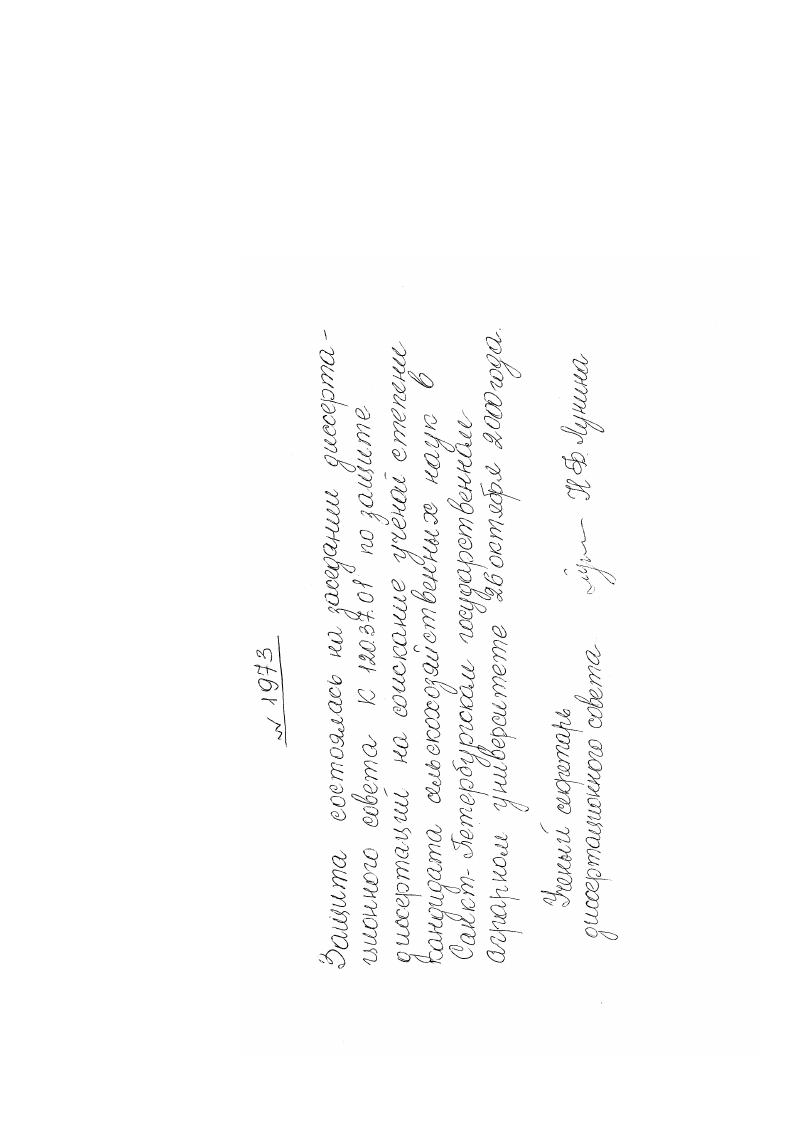 № 1973
Защита состоялась на заседании диссерта-
ционного совета К 120.37.01 по защите
диссертаций на соискание ученой степени
кандидата сельскохозяйственных наук в
Санкт-Петербургском государственном
аграрном университете 26 октября 2000 года.
Ученый секретарь
диссертационного совета Н Ф Лунина